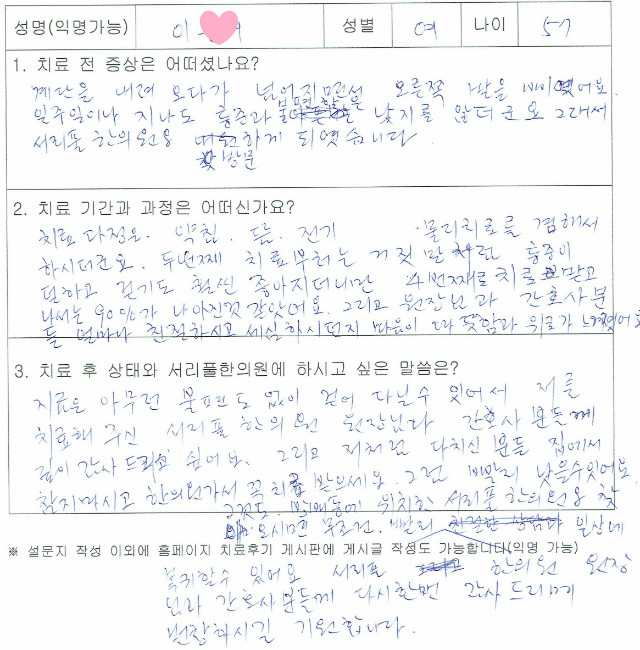 성명(익명가능) 이 성별 여 나이 57
1. 치료 전 증상은 어떠셨나요?
계단을 내려 오다가 넘어지면서 오른쪽 발을 삐었어요.
일주일이나 지나도 통증과 불편함은 낫지를 않더군요 그래서
서리풀 한의원을 방문하게 되었습니다.
2. 치료 기간과 과정은 어떠신가요?
치료 과정은. 약침. 뜸. 전기 물리치료를 겸해서
하시더군요. 두번째 치료부터는 거짓말처럼 통증이
덜하고 걷기도 훨씬 좋아지더니만 4번째로 치료 받고
나서는 90%가 나아진것 같았어요. 그리고 원장님과 간호사분
들 얼마나 친절하시고 세심하시던지 마음이 따뜻함과 위로가 느껴졌어요
3. 치료 후 상태와 서리풀한의원에 하시고 싶은 말씀은?
지금은 아무런 불편도 없이 걸어 다닐수 있어서 저를
치료해 주신 서리풀 한의원 원장님과 간호사 분들께
깊이 감사 드리고 싶어요. 그리고 저처럼 다치신 분들 집에서
참지마시고 한의원가서 꼭 치료 받으세요. 그럼 빨리 낫을수있어요.
그것도 방배동에 위치한 서리풀 한의원을 찾
아 오시면 무조건. 빨리 일상에
※ 설문지 작성 이외에 홈페이지 치료후기 게시판에 게시글 작성도 가능합니다(익명 가능)
복귀할수 있어요 서리풀 한의원 원장
님과 간호사분들께 다시한번 감사 드리며
번창하시길 기원합니다.